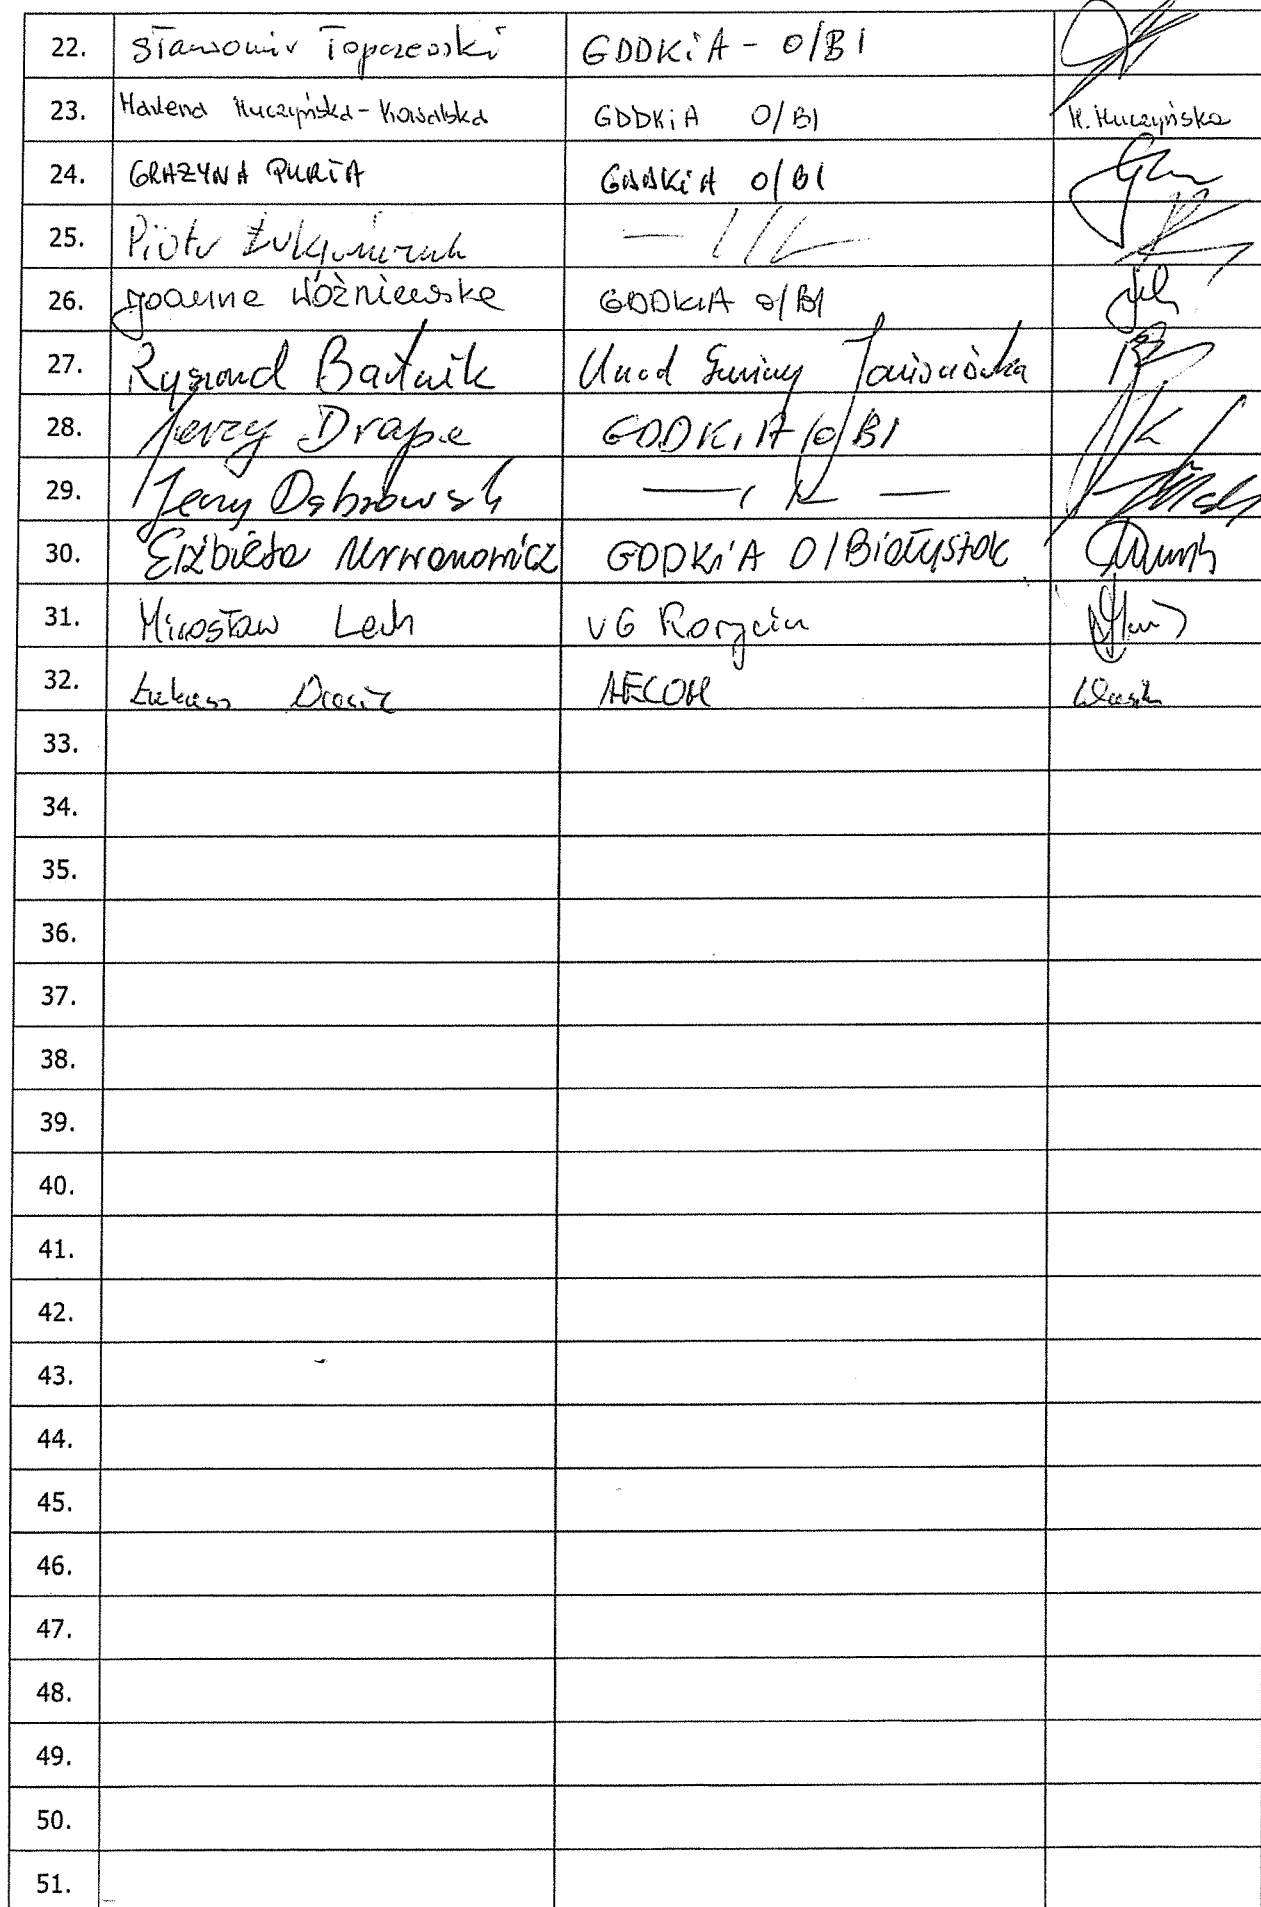 22. Sławomir Topczewski GDDKiA - O/BI
23. Marlena Huczyńska-Kowalska GDDKiA O/BI M. Huczyńska
24. GRAŻYNA PURTA GDDKiA O/BI
25. Piotr — 〃 —
26. Joanna Woźniewska GDDKiA O/BI
27. Rajmund Urząd Gminy Janowówka
28. Jerzy Drapa GDDKiA O/BI
29. Jerzy Dąbrowski — 〃 —
30. Elżbieta Urwanowicz GDDKiA O/Białystok
31. Mirosław Lech UG Korycin
32. Łukasz AECOM
33.
34.
35.
36.
37.
38.
39.
40.
41.
42.
43.
44.
45.
46.
47.
48.
49.
50.
51.